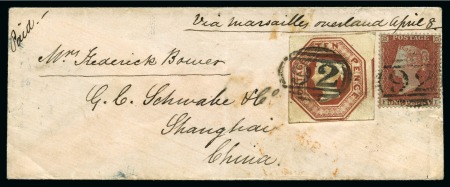 Paid
Via Marsailles overland April 8
Mrs Frederick Bower
G. C. Schwabe & Co
Shanghai
China.
TEN PENCE
POSTAGE
2
POSTAGE
98